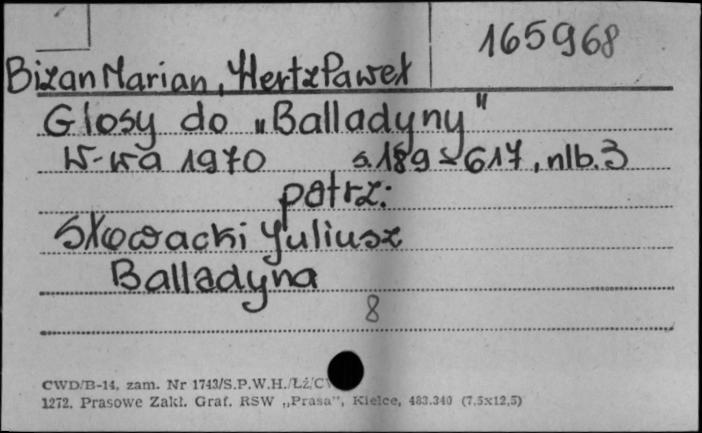 165968
Bizan Marian, Hertz Paweł
Glosy do „Balladyny"
W-wa 1970 s. 189-617, nlb. 3
patrz:
Słowacki Juliusz
Balladyna
8
CWD/B-14, zam. Nr 1743/S.P.W.H./Łź/C
1272. Prasowe Zakł. Graf. RSW „Prasa", Kielce, 483.340 (7,5x12,5)